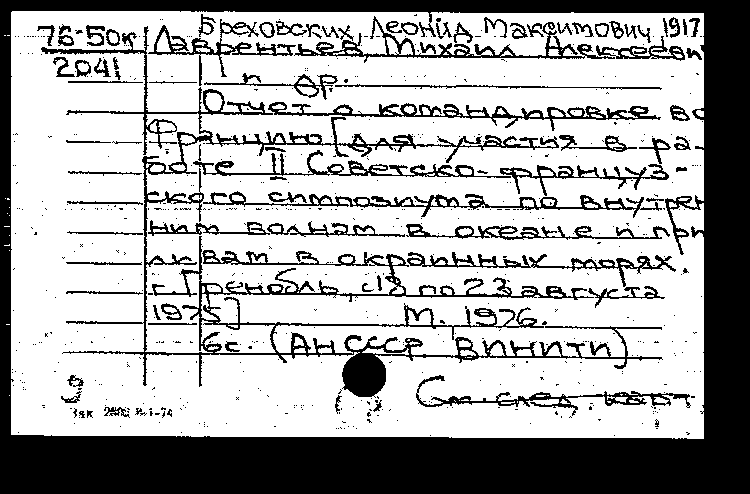 Бреховских, Леонид Максимович, 1917
76-50к Лаврентьев, Михаил Алексеевич
2041 и др.
Отчет о командировке во
Францию [для участия в ра-
боте II Советско-француз-
ского симпозиума по внутрен
ним волнам в океане и при
ливам в окраинных морях.
г. Гренобль, с 18 по 23 августа
1975] М. 1976.
6с. (АН СССР. ВИНИТИ).
9 См. след. карт.